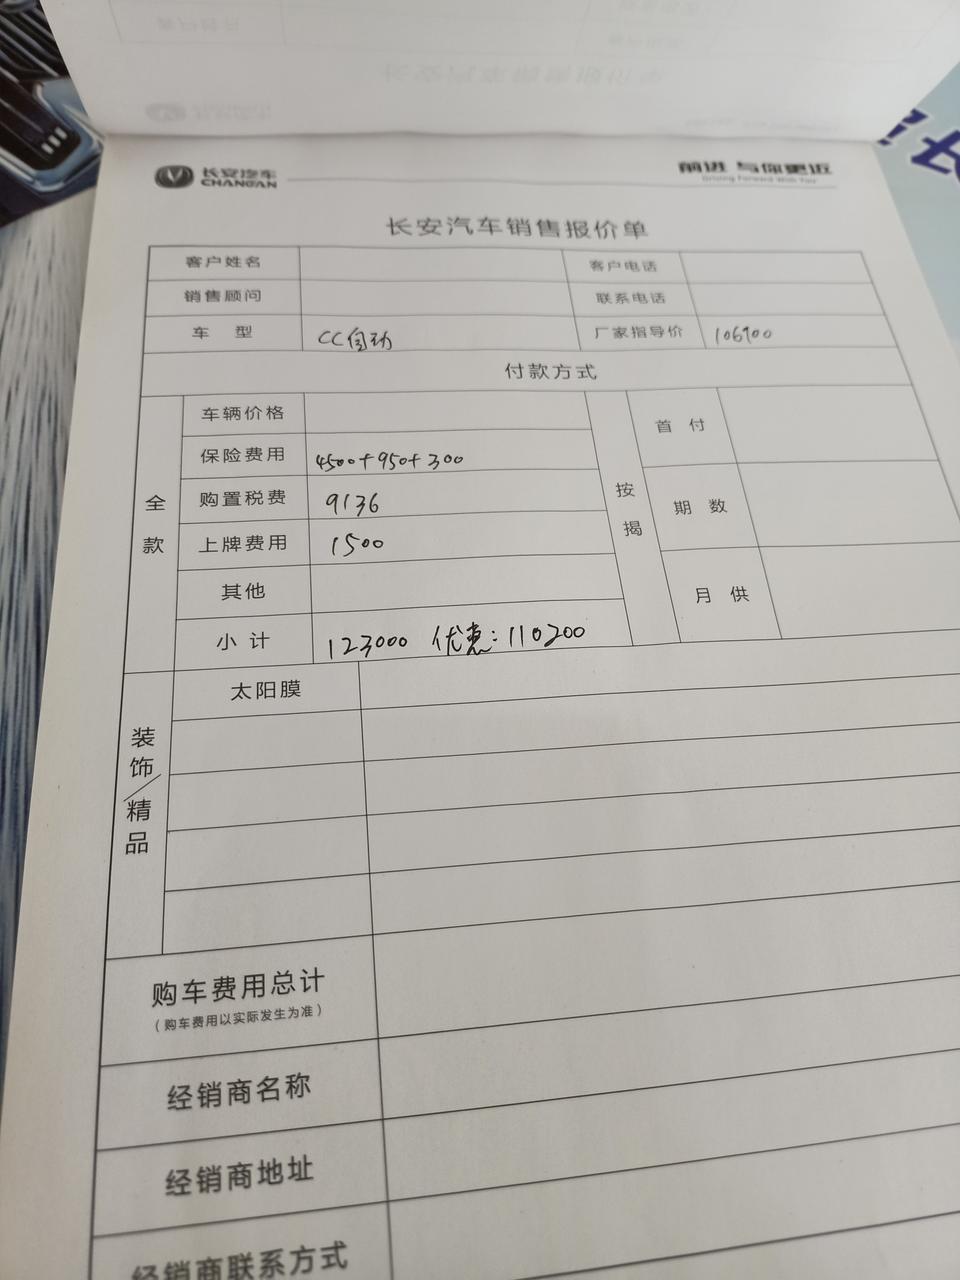 长安汽车
CHANGAN
前进 与你更近
Driving Forward With You
长安汽车销售报价单
客户姓名 客户电话
销售顾问 联系电话
车 型 CC自动 厂家指导价 106900
付款方式
全款
车辆价格
保险费用 4500+950+300
购置税费 9136
上牌费用 1500
其他
小计 123000 优惠:110200
按揭
首付
期数
月供
装饰/精品
太阳膜
购车费用总计
(购车费用以实际发生为准)
经销商名称
经销商地址
经销商联系方式